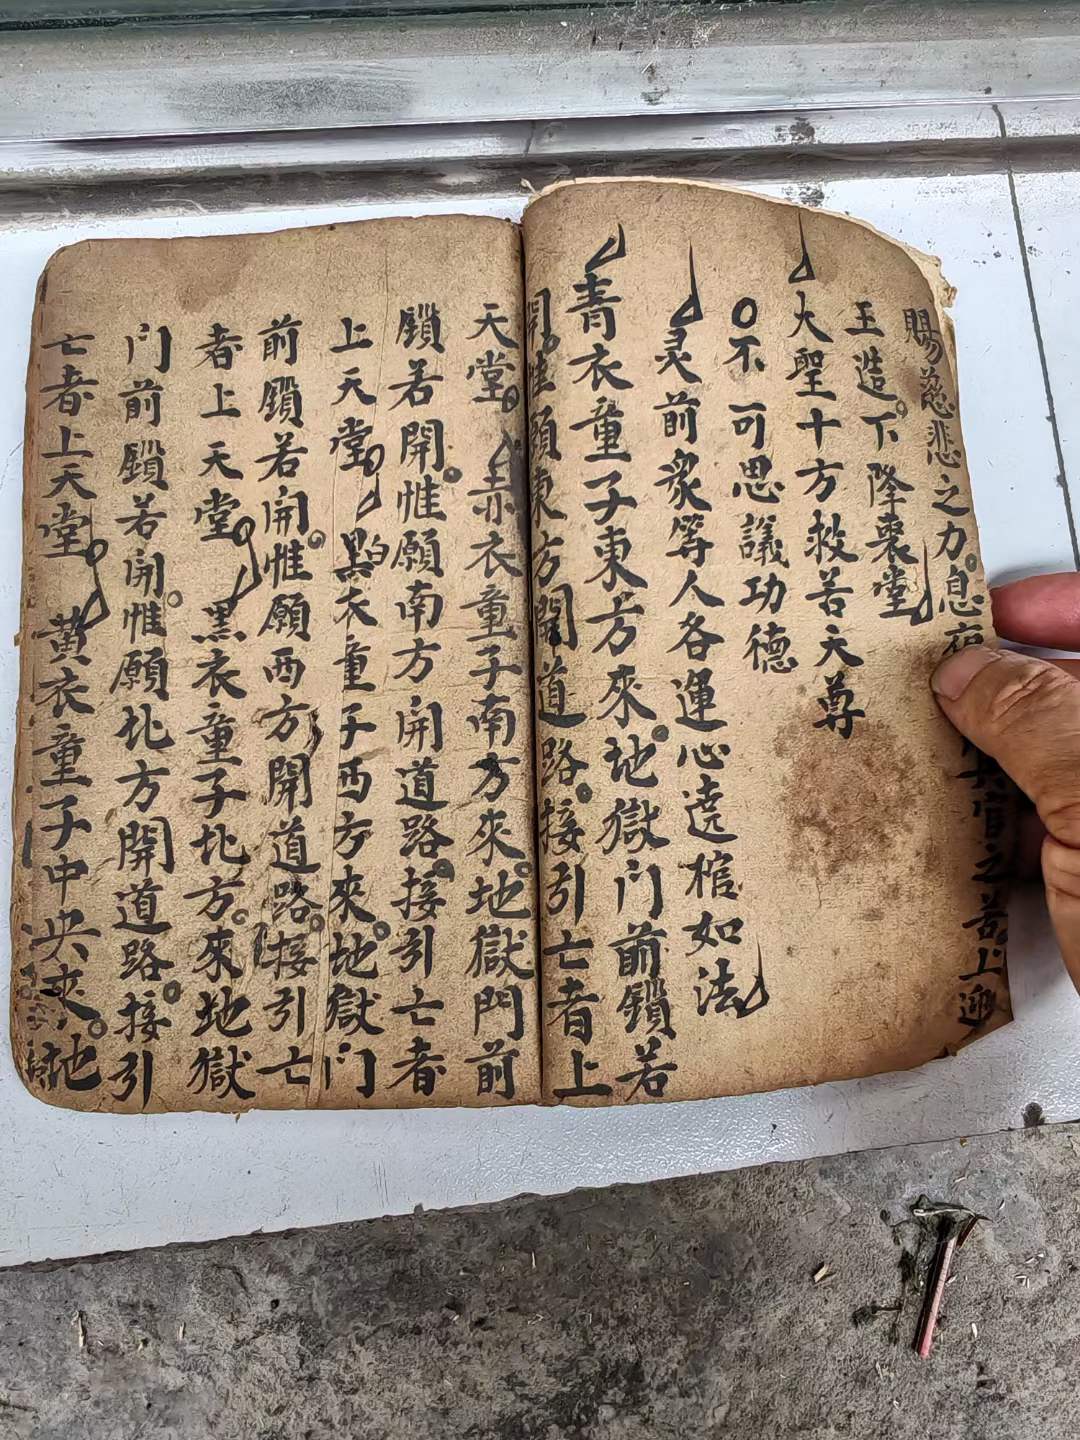 賜慈悲之力。息夜之苦。上迎
王造。下降喪堂
大聖十方救苦天尊
○不可思議功德
灵前衆等人各運心遶棺如法
青衣童子東方來。地獄門前鎖若
開。惟願東方開道路。接引亡者上
天堂。赤衣童子南方來。地獄門前
鎖若開。惟願南方開道路。接引亡者
上天堂。黑白衣童子西方來。地獄門
前鎖若開。惟願西方開道路。接引亡
者上天堂。黑衣童子北方。來地獄
門前鎖若開。惟願北方開道路。接引
亡者上天堂。黃衣童子中央來。地